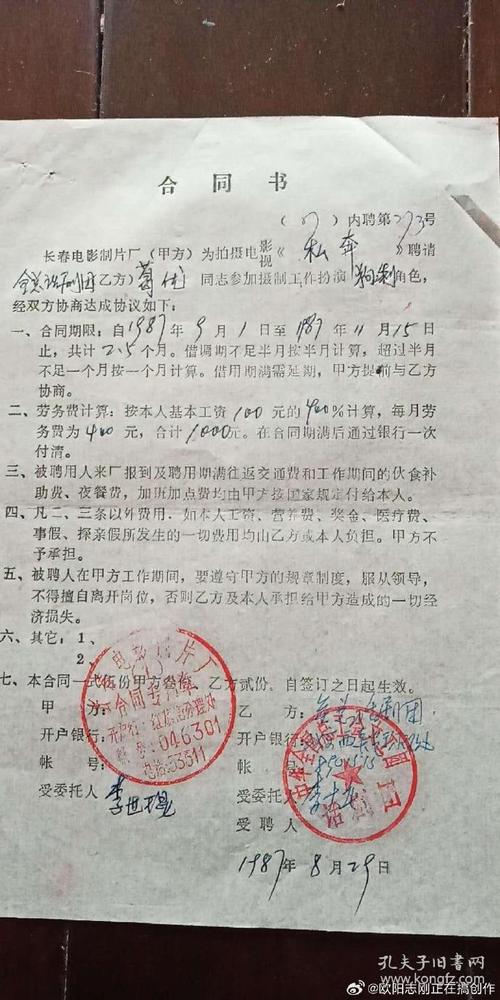 合同书
(87)内聘第273号
长春电影制片厂(甲方)为拍摄电影视《私奔》聘请
全总话剧团(乙方)葛优同志参加摄制工作扮演 角色,
经双方协商达成协议如下:
一、合同期限:自1987年9月1日至1987年11月15日
止,共计2.5个月。借调期不足半月按半月计算,超过半月
不足一个月按一个月计算。借用期满需延期,甲方提前与乙方
协商。
二、劳务费计算:按本人基本工资100元的400%计算,每月劳
务费为400元,合计1000元。在合同期满后通过银行一次
付清。
三、被聘用人来厂报到及聘用期满往返交通费和工作期间的伙食补
助费、夜餐费,加班加点费均由甲方按国家规定付给本人。
四、凡二、三条以外费用,如本人工资、营养费、奖金、医疗费、
事假、探亲假所发生的一切费用均由乙方或本人负担。甲方不
予承担。
五、被聘人在甲方工作期间,要遵守甲方的规章制度,服从领导,
不得擅自离开岗位,否则乙方及本人承担给甲方造成的一切经
济损失。
六、其它:1、
2、
七、本合同一式 份甲方叁份,乙方贰份,自签订之日起生效。
甲方: 乙方:全总话剧团
开户银行: 开户银行:
帐号: 帐号:
受委托人 李世 受委托人 李
受聘人
1987年8月29日
电影制片厂
合同专用章
开户行:红旗街分理处
帐号:046301
电话:53311
中华全国总工会文工团
话剧团
孔夫子旧书网
kongfz.com
@欧阳志刚正在搞创作